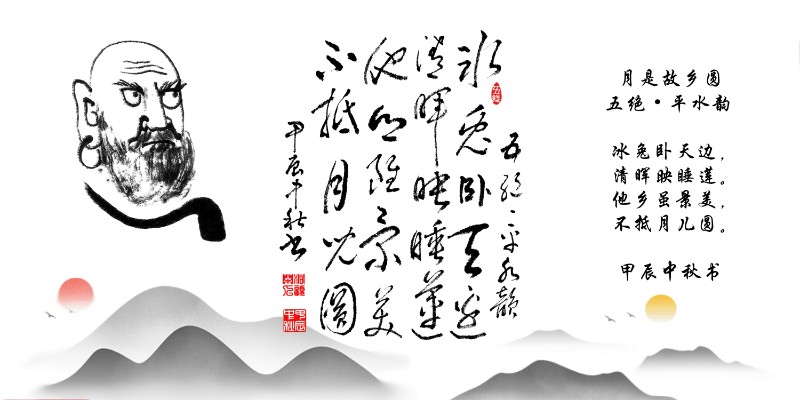 冰兔卧天边
清晖映睡莲
他乡虽景美
不抵月儿圆
五绝·平水韵
甲辰中秋书
月是故乡圆
五绝·平水韵
冰兔卧天边，
清晖映睡莲。
他乡虽景美，
不抵月儿圆。
甲辰中秋书